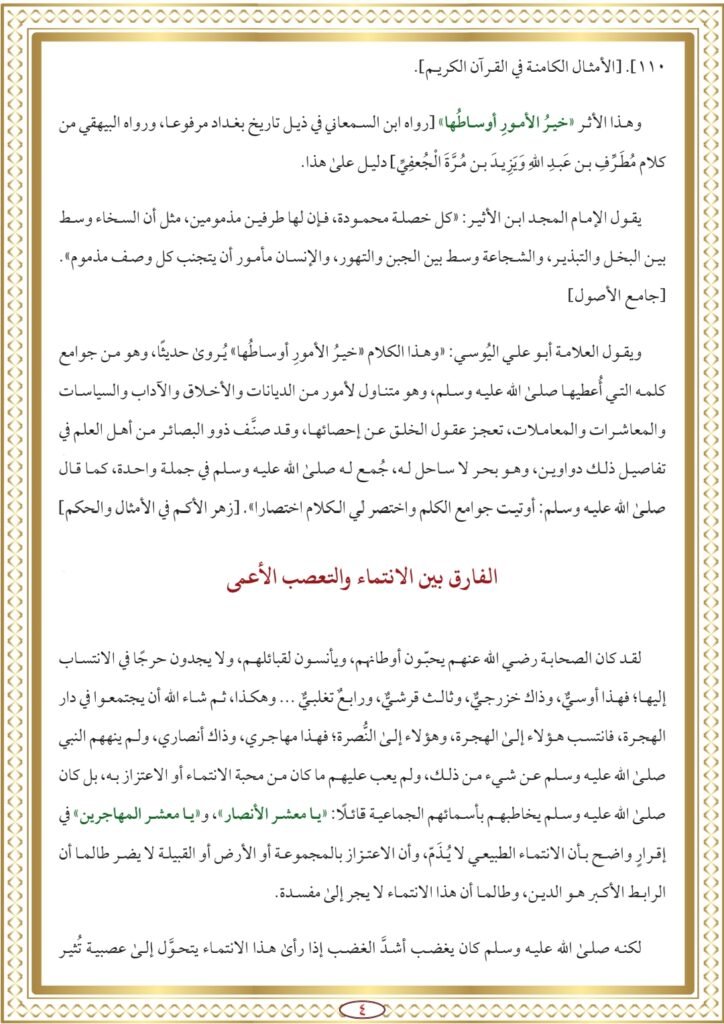 ١١٠]. [الأمثال الكامنة في القرآن الكريم].
وهذا الأثر «خيرُ الأمورِ أوساطُها» [رواه ابن السمعاني في ذيل تاريخ بغداد مرفوعا، ورواه البيهقي من
كلام مُطَرِّفِ بن عَبدِ اللهِ وَيَزِيدَ بن مُرَّةَ الْجُعفِيِّ] دليل علىٰ هذا.
يقول الإمام المجد ابن الأثير: «كل خصلة محمودة، فإن لها طرفين مذمومين، مثل أن السخاء وسط
بين البخل والتبذير، والشجاعة وسط بين الجبن والتهور، والإنسان مأمور أن يتجنب كل وصف مذموم».
[جامع الأصول]
ويقول العلامة أبو علي اليُوسي: «وهذا الكلام «خيرُ الأمورِ أوساطُها» يُروىٰ حديثًا، وهو من جوامع
كلمه التي أُعطيها صلىٰ الله عليه وسلم، وهو متناول لأمور من الديانات والأخلاق والآداب والسياسات
والمعاشرات والمعاملات، تعجز عقول الخلق عن إحصائها، وقد صنَّف ذوو البصائر من أهل العلم في
تفاصيل ذلك دواوين، وهو بحر لا ساحل له، جُمع له صلىٰ الله عليه وسلم في جملة واحدة، كما قال
صلىٰ الله عليه وسلم: أوتيت جوامع الكلم واختصر لي الكلام اختصارا». [زهر الأكم في الأمثال والحكم]
الفارق بين الانتماء والتعصب الأعمى
لقد كان الصحابة رضي الله عنهم يحبّون أوطانهم، ويأنسون لقبائلهم، ولا يجدون حرجًا في الانتساب
إليها؛ فهذا أوسيٌّ، وذاك خزرجيٌّ، وثالث قرشيٌّ، ورابعٌ تغلبيٌّ ... وهكذا، ثم شاء الله أن يجتمعوا في دار
الهجرة، فانتسب هؤلاء إلىٰ الهجرة، وهؤلاء إلىٰ النُّصرة؛ فهذا مهاجري، وذاك أنصاري، ولم ينههم النبي
صلىٰ الله عليه وسلم عن شيء من ذلك، ولم يعب عليهم ما كان من محبة الانتماء أو الاعتزاز به، بل كان
صلىٰ الله عليه وسلم يخاطبهم بأسمائهم الجماعية قائلًا: «يا معشر الأنصار»، و«يا معشر المهاجرين» في
إقرارٍ واضح بأن الانتماء الطبيعي لا يُذَمّ، وأن الاعتزاز بالمجموعة أو الأرض أو القبيلة لا يضر طالما أن
الرابط الأكبر هو الدين، وطالما أن هذا الانتماء لا يجر إلىٰ مفسدة.
لكنه صلىٰ الله عليه وسلم كان يغضب أشدَّ الغضب إذا رأىٰ هذا الانتماء يتحوَّل إلىٰ عصبية تُثير
٤